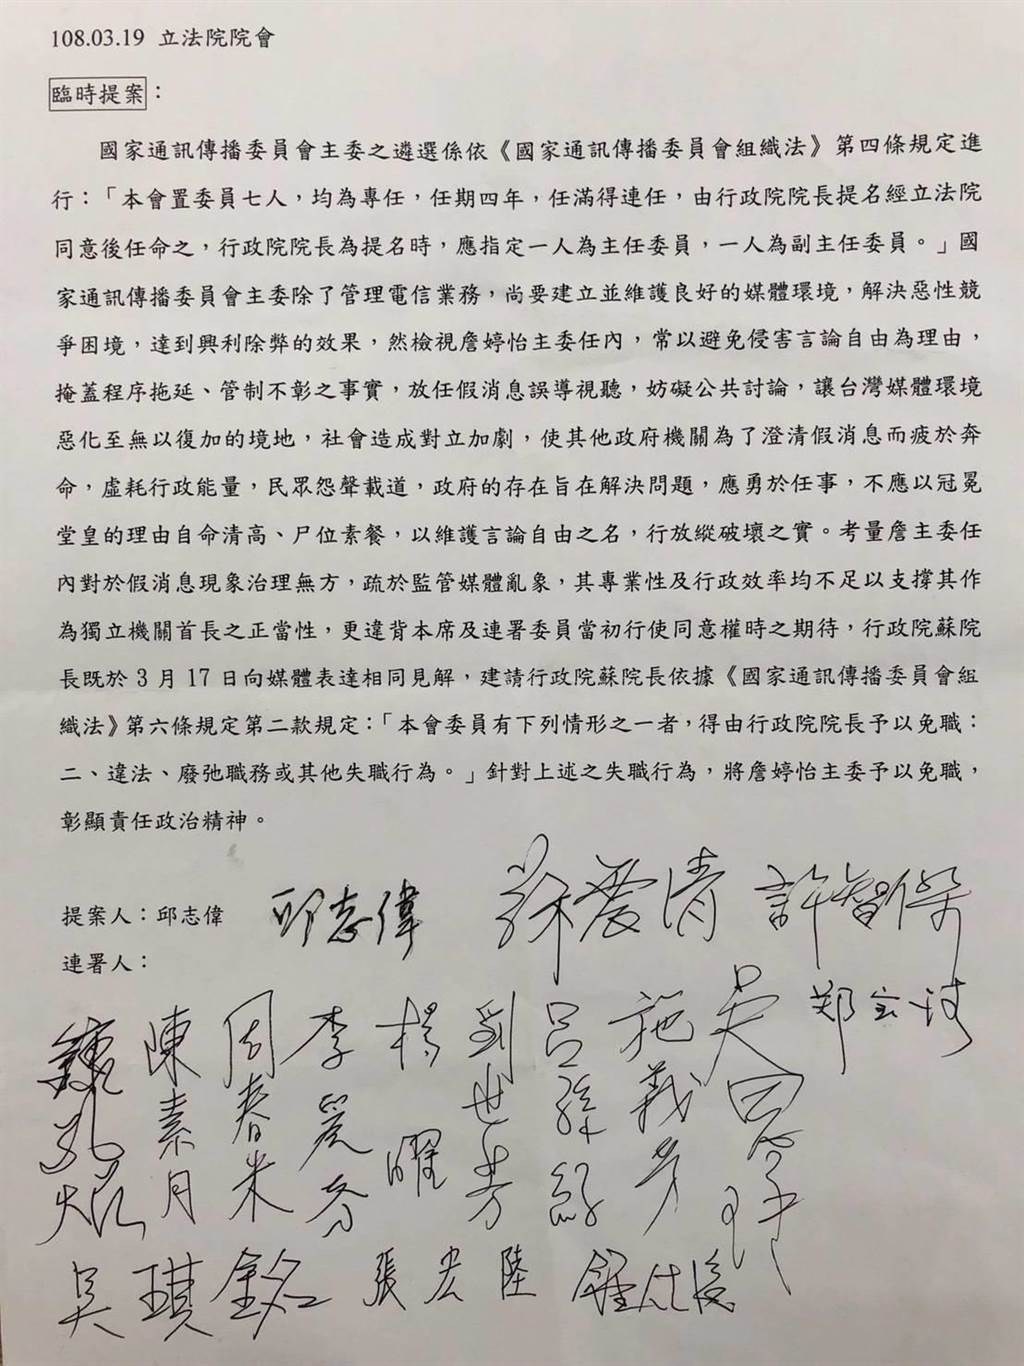 108.03.19 立法院院會
臨時提案：
國家通訊傳播委員會主委之遴選係依《國家通訊傳播委員會組織法》第四條規定進
行：「本會置委員七人，均為專任，任期四年，任滿得連任，由行政院院長提名經立法院
同意後任命之，行政院院長為提名時，應指定一人為主任委員，一人為副主任委員。」國
家通訊傳播委員會主委除了管理電信業務，尚要建立並維護良好的媒體環境，解決惡性競
爭困境，達到興利除弊的效果，然檢視詹婷怡主委任內，常以避免侵害言論自由為理由，
掩蓋程序拖延、管制不彰之事實，放任假消息誤導視聽，妨礙公共討論，讓台灣媒體環境
惡化至無以復加的境地，社會造成對立加劇，使其他政府機關為了澄清假消息而疲於奔
命，虛耗行政能量，民眾怨聲載道，政府的存在旨在解決問題，應勇於任事，不應以冠冕
堂皇的理由自命清高、尸位素餐，以維護言論自由之名，行放縱破壞之實。考量詹主委任
內對於假消息現象治理無方，疏於監管媒體亂象，其專業性及行政效率均不足以支撐其作
為獨立機關首長之正當性，更違背本席及連署委員當初行使同意權時之期待，行政院蘇院
長既於 3 月 17 日向媒體表達相同見解，建請行政院蘇院長依據《國家通訊傳播委員會組
織法》第六條規定第二款規定：「本會委員有下列情形之一者，得由行政院院長予以免職：
二、違法、廢弛職務或其他失職行為。」針對上述之失職行為，將詹婷怡主委予以免職，
彰顯責任政治精神。
提案人：邱志偉 邱志偉
連署人：
陳素月
周春米
楊曜
劉世芳
施義芳
吳琪銘 張宏陸